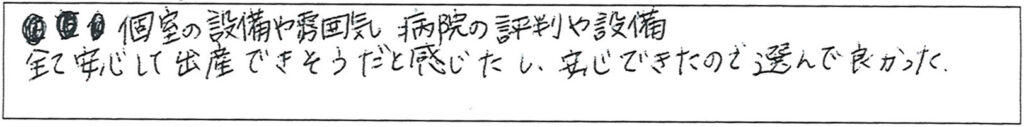 個室の設備や雰囲気 病院の評判や設備
全て安心して出産できそうだと感じたし、安心できたので選んで良かった.